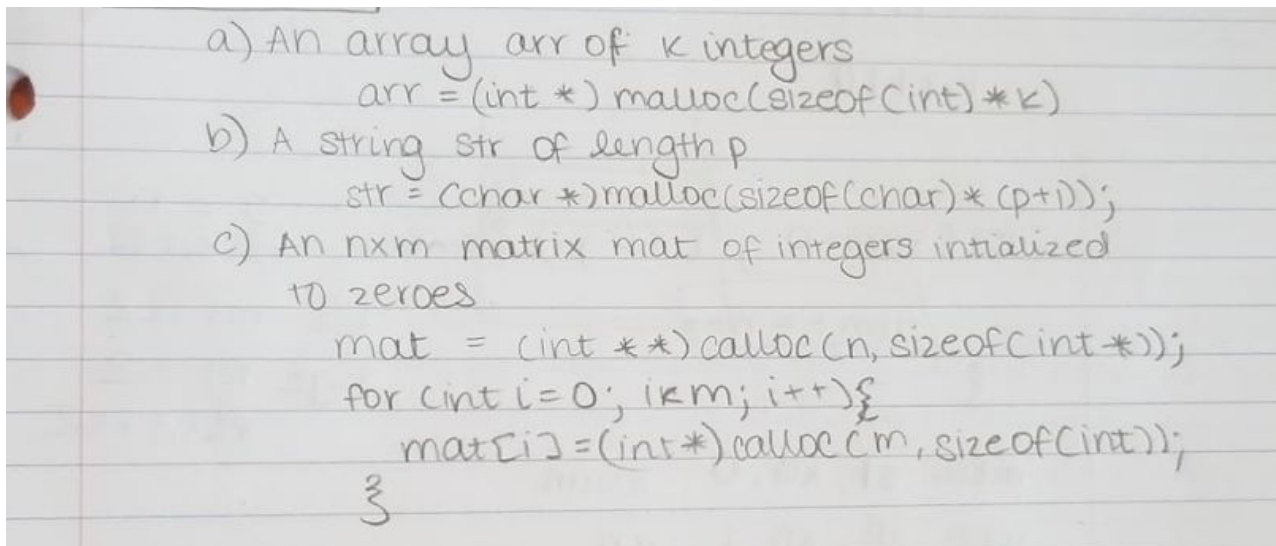 a) An array arr of k integers
arr = (int *) malloc(sizeof(int) * k)
b) A string str of length p
str = (char *)malloc(sizeof(char) * (p+1));
c) An nxm matrix mat of integers intialized
to zeroes
mat = (int **) calloc(n, sizeof(int *));
for (int i=0; i<m; i++){
mat[i] = (int*) calloc(m, sizeof(int));
}